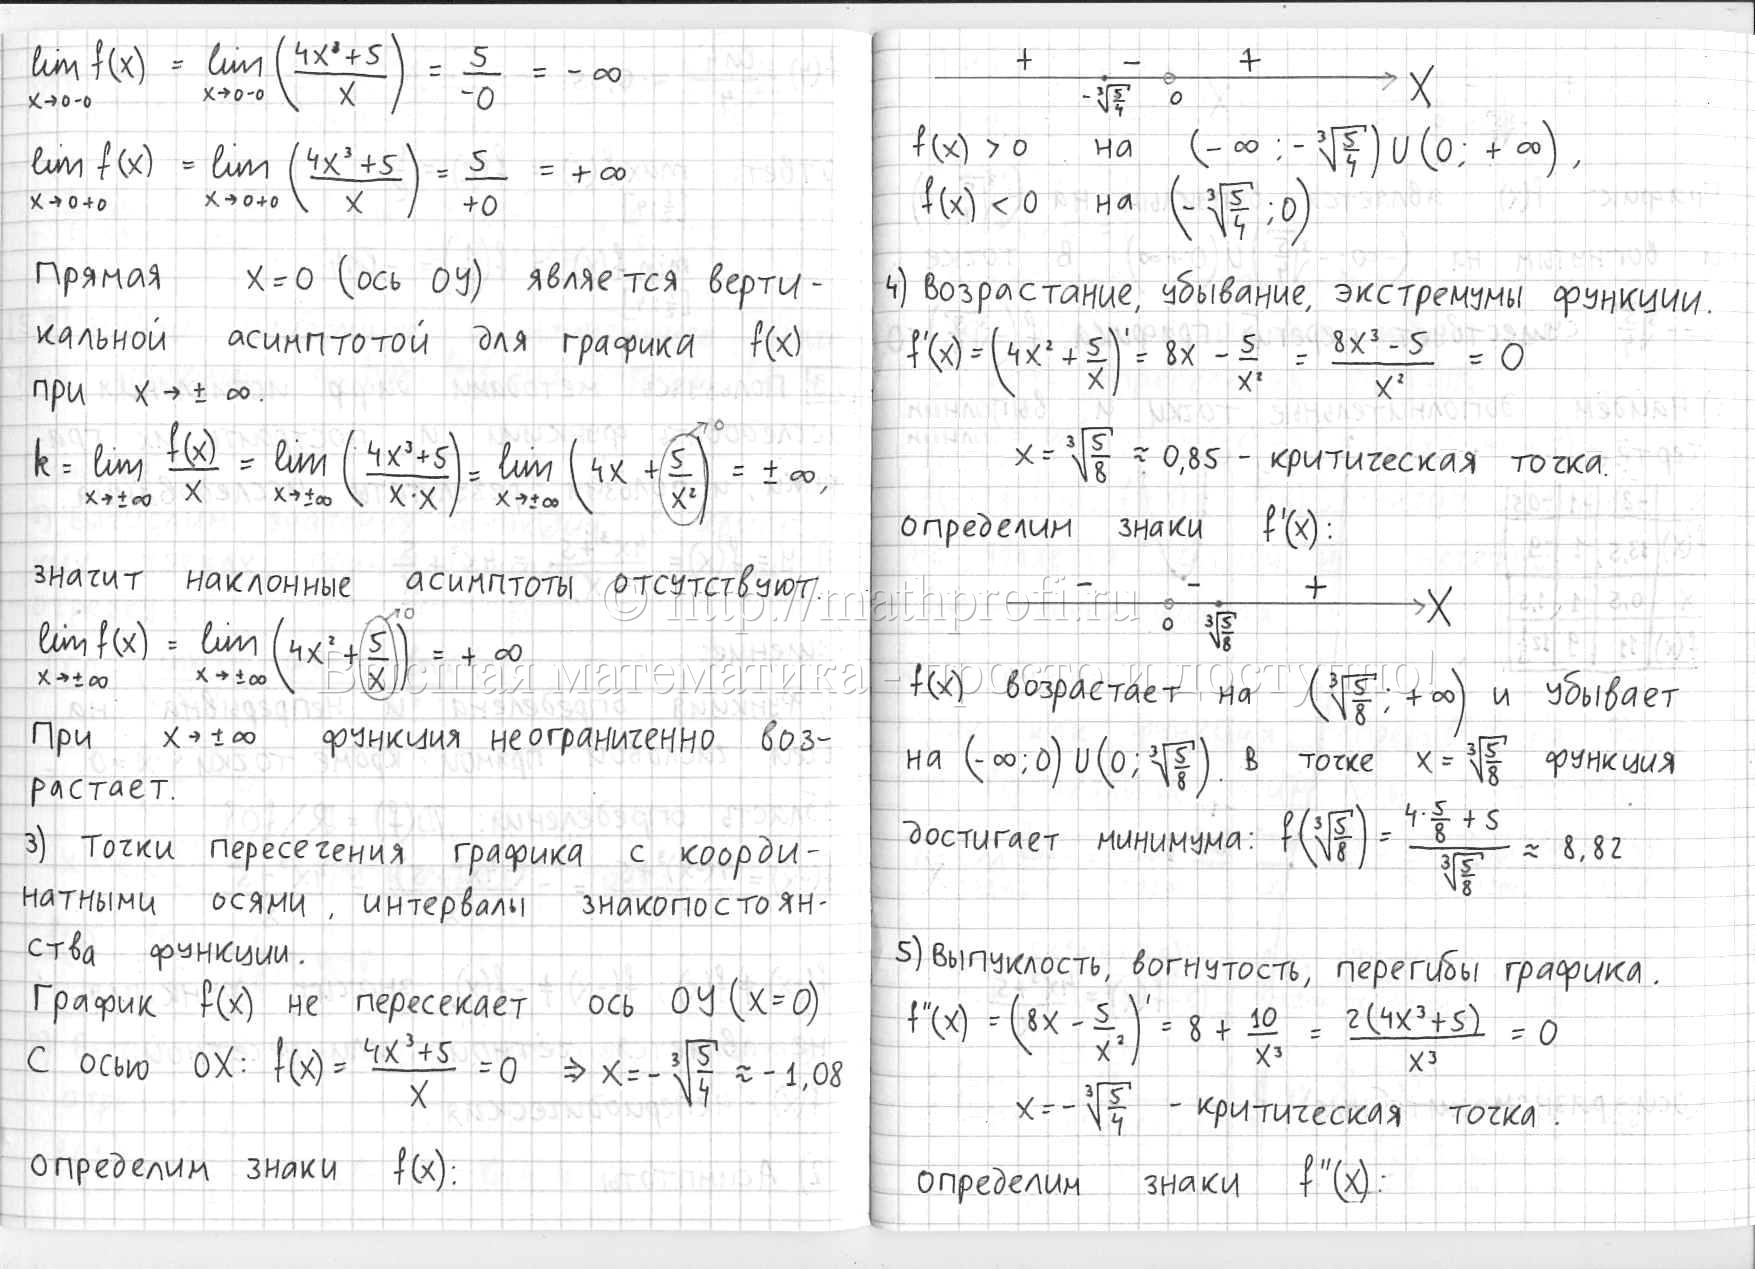 lim f(x) = lim ((4x³+5)/x) = 5/-0 = -∞
x→0-0 x→0-0
lim f(x) = lim ((4x³+5)/x) = 5/+0 = +∞
x→0+0 x→0+0
Прямая x=0 (ось OY) является верти-
кальной асимптотой для графика f(x)
при x→±∞.
k = lim f(x)/x = lim ((4x³+5)/(x·x)) = lim (4x + 5/x²) →0 = ±∞,
x→±∞ x→±∞ x→±∞
значит наклонные асимптоты отсутствуют.
lim f(x) = lim (4x² + 5/x) →0 = +∞
x→±∞ x→±∞
При x→±∞ функция неограниченно воз-
растает.
3) Точки пересечения графика с коорди-
натными осями, интервалы знакопостоян-
ства функции.
График f(x) не пересекает ось OY (x=0)
С осью OX: f(x) = (4x³+5)/x = 0 ⇒ x = -∛(5/4) ≈ -1,08
Определим знаки f(x):
+ - +
-∛(5/4) 0 X
f(x) > 0 на (-∞; -∛(5/4)) U (0; +∞),
f(x) < 0 на (-∛(5/4); 0)
4) Возрастание, убывание, экстремумы функции.
f'(x) = (4x² + 5/x)' = 8x - 5/x² = (8x³-5)/x² = 0
x = ∛(5/8) ≈ 0,85 - критическая точка.
Определим знаки f'(x):
- - +
0 ∛(5/8) X
f(x) возрастает на (∛(5/8); +∞) и убывает
на (-∞; 0) U (0; ∛(5/8)). В точке x = ∛(5/8) функция
достигает минимума: f(∛(5/8)) = (4·5/8 + 5)/∛(5/8) ≈ 8,82
5) Выпуклость, вогнутость, перегибы графика.
f''(x) = (8x - 5/x²)' = 8 + 10/x³ = 2(4x³+5)/x³ = 0
x = -∛(5/4) - критическая точка.
Определим знаки f''(x):
© http://mathprofi.ru
Высшая математика - просто и доступно!